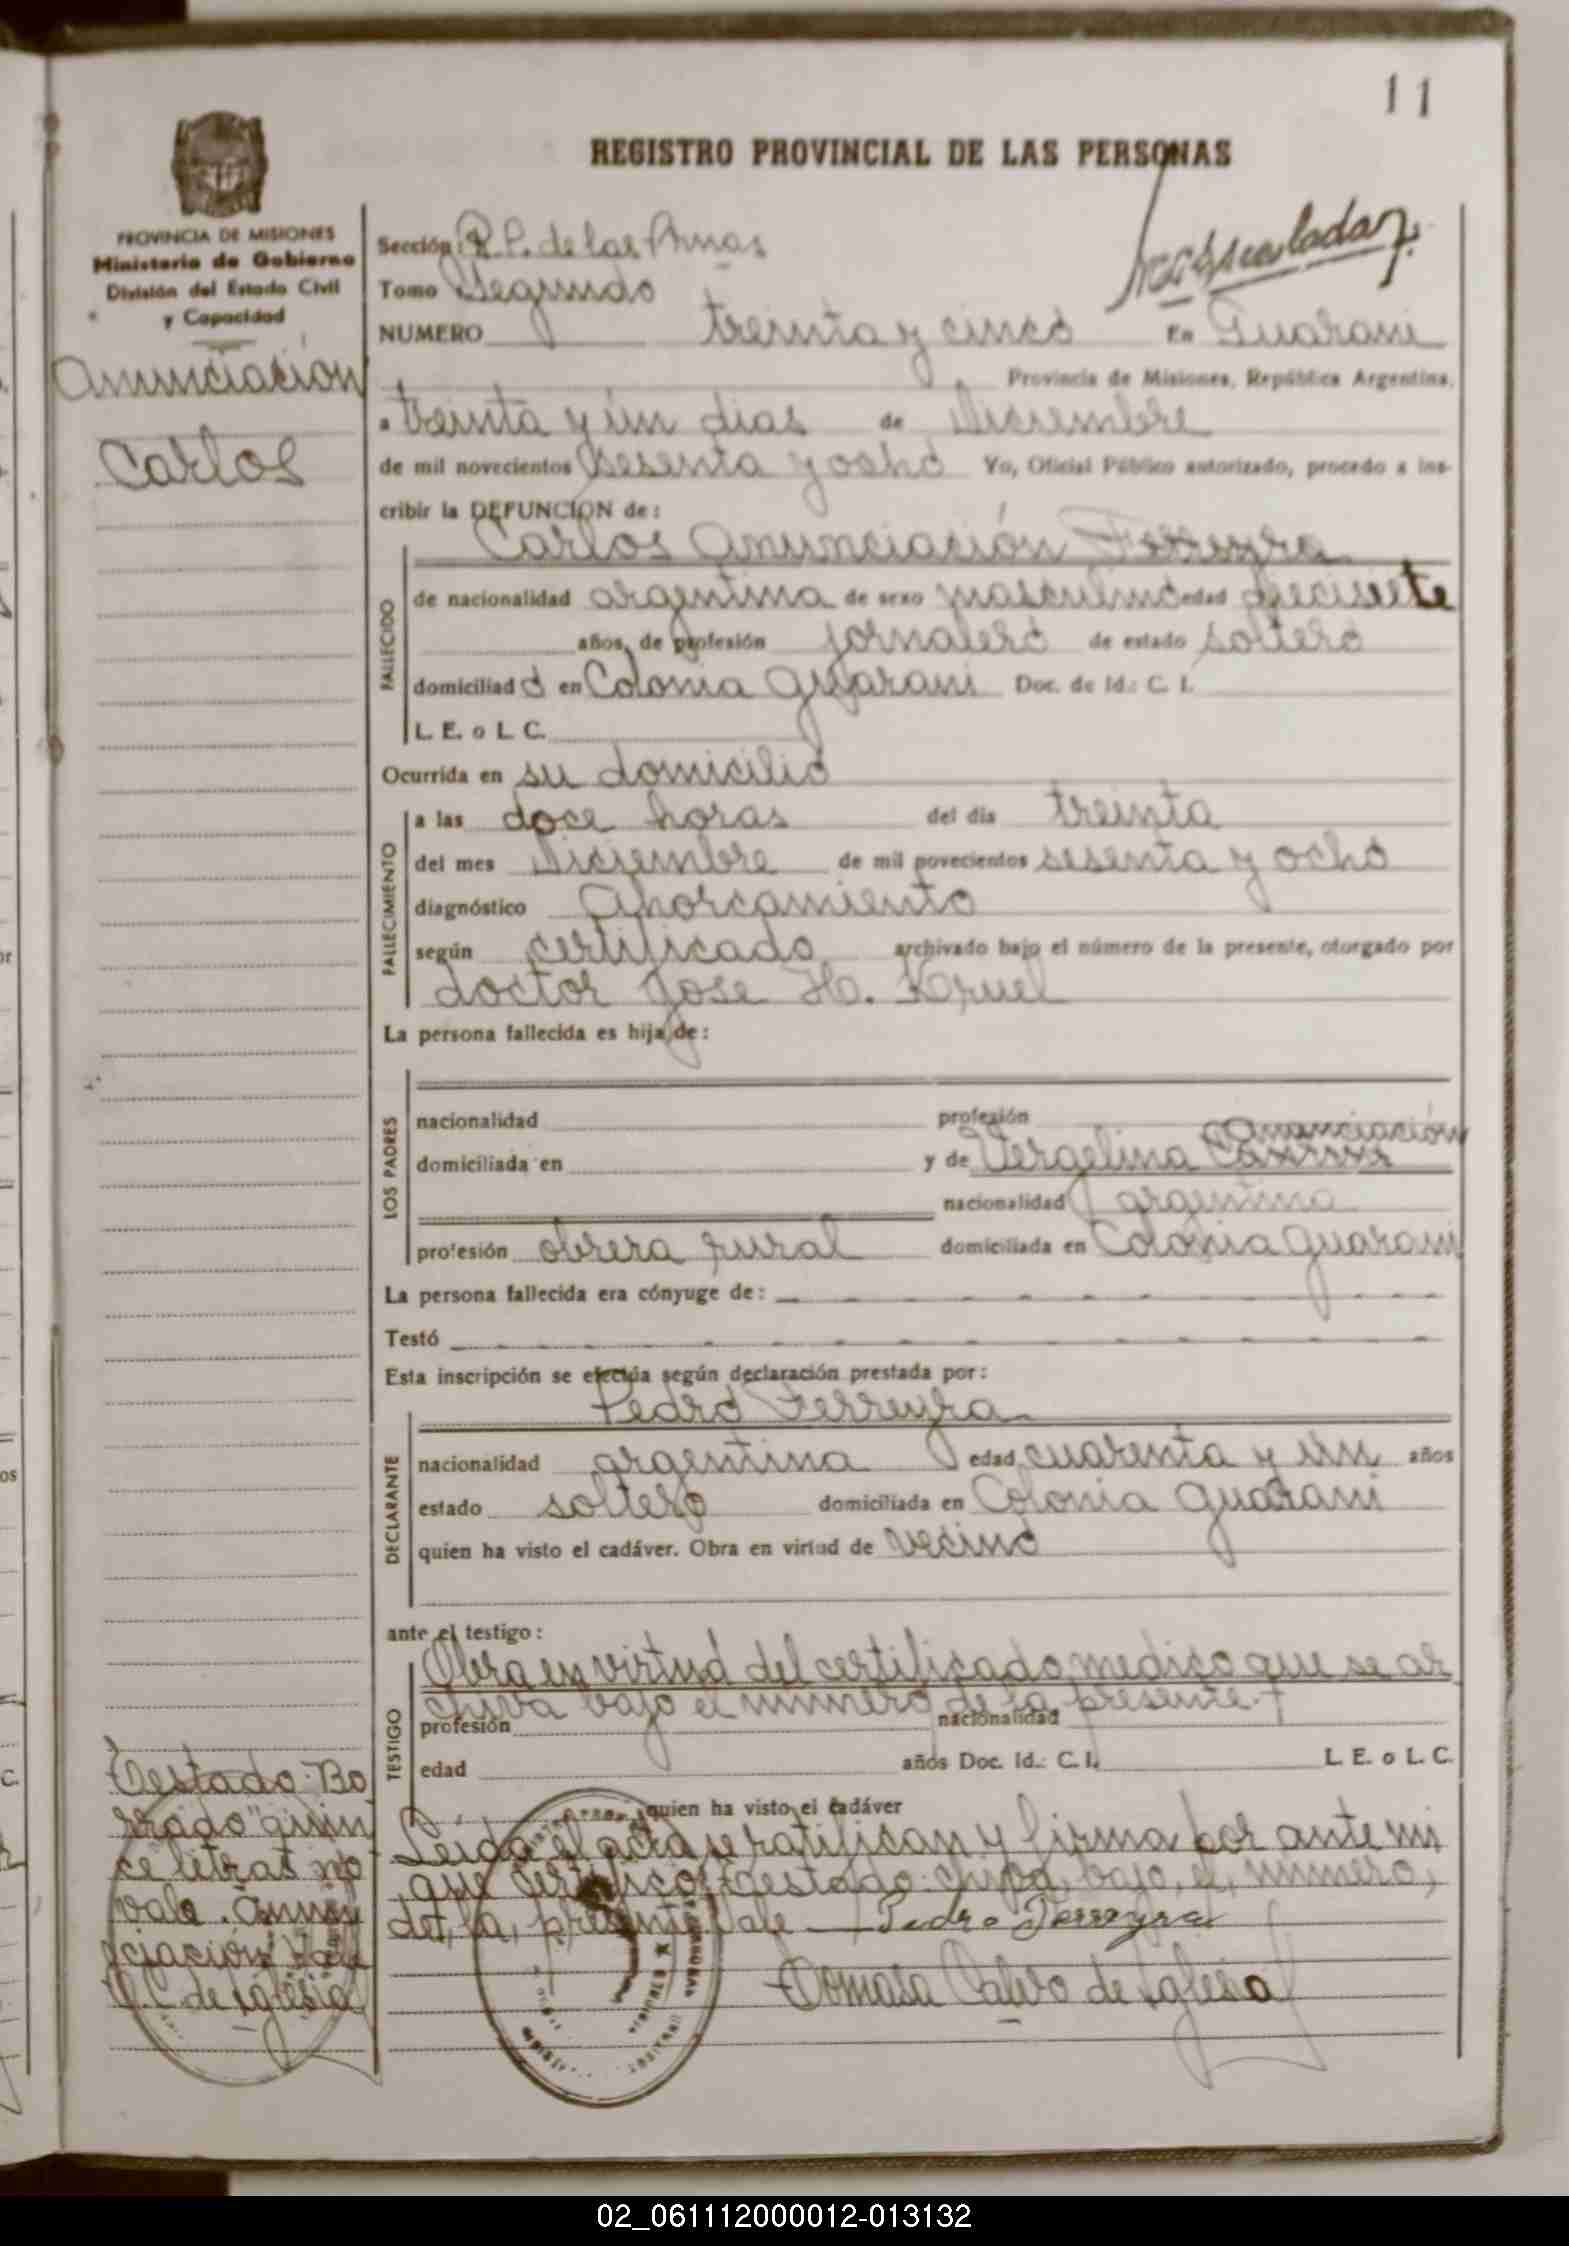 11
REGISTRO PROVINCIAL DE LAS PERSONAS
PROVINCIA DE MISIONES
Ministerio de Gobierno
División del Estado Civil
y Capacidad
Anunciación
Carlos
Sección R. P. de las
Tomo Segundo
NUMERO treinta y cinco En Guarani
Provincia de Misiones, República Argentina,
a treinta y ún dias de Diciembre
de mil novecientos sesenta y ocho Yo, Oficial Público autorizado, procedo a ins-
cribir la DEFUNCION de:
Carlos Anunciación Ferreyra
FALLECIDO
de nacionalidad argentina de sexo masculino edad diecisiete
años, de profesión jornalero de estado soltero
domiciliado en Colonia Guarani Doc. de Id.: C. I.
L. E. o L. C.
Ocurrida en su domicilio
FALLECIMIENTO
a las doce horas del dia treinta
del mes Diciembre de mil novecientos sesenta y ocho
diagnóstico Ahorcamiento
según certificado archivado bajo el número de la presente, otorgado por
doctor Jose H. Kruel
La persona fallecida es hija de:
LOS PADRES
nacionalidad profesión
Anunciación
domiciliada en y de Vergelina
nacionalidad argentina
profesión obrera rural domiciliada en Colonia Guarani
La persona fallecida era cónyuge de: — - - - - - - - -
Testó - - - - - - - - - -
Esta inscripción se efectúa según declaración prestada por:
Pedro Ferreyra
DECLARANTE
nacionalidad argentina edad cuarenta y ún años
estado soltero domiciliada en Colonia Guarani
quien ha visto el cadáver. Obra en virtud de vecino
ante el testigo:
TESTIGO
Obra en virtud del certificado medico que se ar
chiva bajo el numero de la presente.
profesión nacionalidad
edad años Doc. Id.: C. I. L. E. o L. C.
quien ha visto el cadáver
Leida el acta se ratifican y firma por ante mi
que certifico. Testado: chiva, bajo, el, numero,
de, la, presente. Vale — Pedro Ferreyra
Tomasa Calvo de Iglesia
Testado: Bo
rrado "quin
ce letras no
vale. Anun
ciación Vale
T. C. de Iglesia
02_061112000012-013132